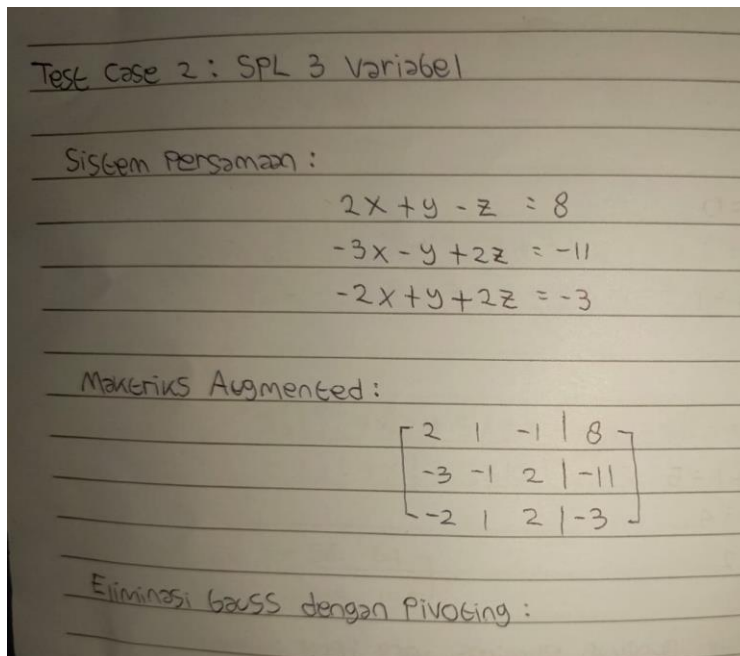 Test Case 2: SPL 3 Variabel
Sistem Persamaan:
2x + y - z = 8
-3x - y + 2z = -11
-2x + y + 2z = -3
Maktriks Augmented:
2 1 -1 | 8
-3 -1 2 | -11
-2 1 2 | -3
Eliminasi Gauss dengan Pivoting: